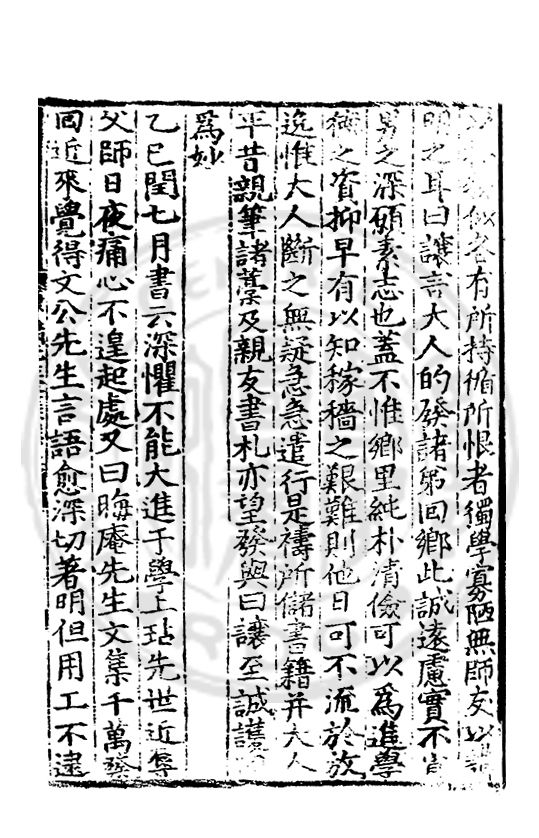 有所持循所恨者獨學寡陋無師友以講
明之耳曰讓言大人的發諸第回鄉此誠遠慮實不肖
男之深願素志也蓋不惟鄉里純朴清儉可以為進學
之資抑早有以知稼穡之艱難則他日可不流於放
逸惟大人斷之無疑急急遣行是禱所儲書籍并大人
平昔親筆諸藁及親友書札亦望發與曰讓至誠護
為妙
乙巳閏七月書云深懼不能大進于學上玷先世近辱
父師日夜痛心不遑起處又曰晦庵先生文集千萬發
回近來覺得文公先生言語愈深切著明但用工不逮